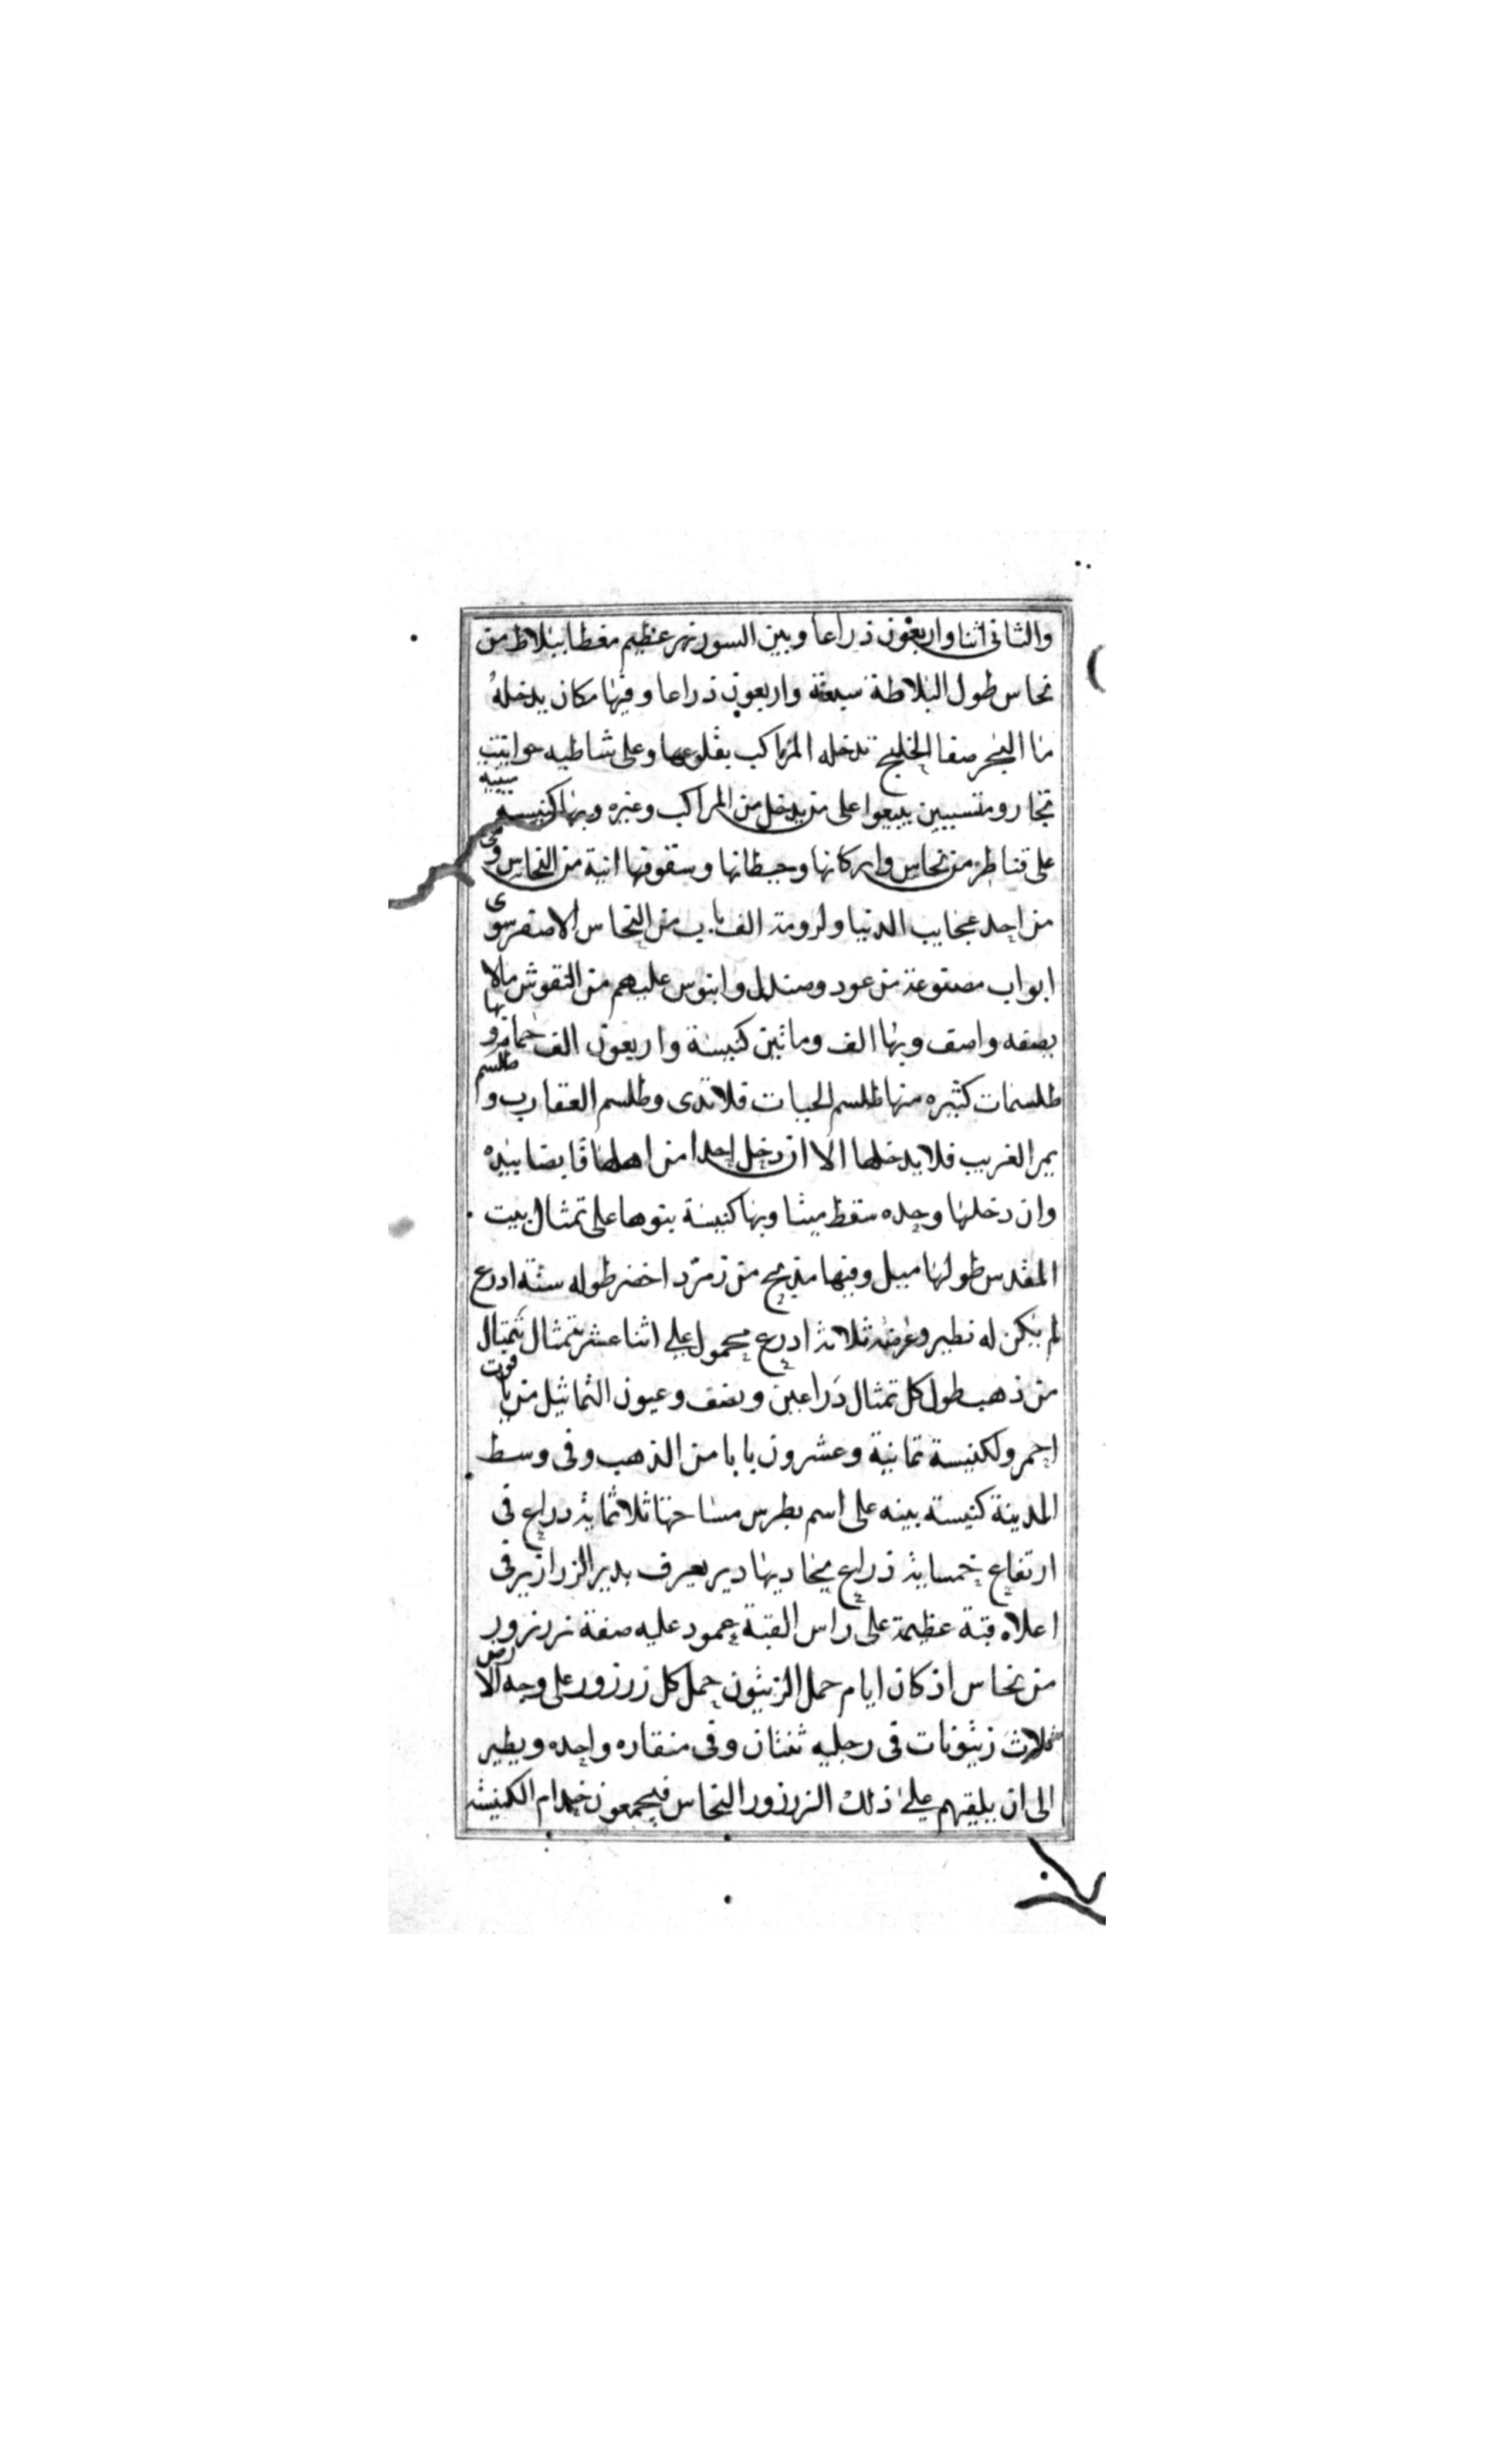 والثانى اثنا واربعون ذراعا وبين السور نهر عظيم مغطا ببلاط من
نحاس طول البلاطة سبعة واربعون ذراعا وفيها مكان يدخله
ما البحر صفا الخليج تدخله المراكب بقلوعها وعلى شاطيه حوانيت
تجار ومتسببين يبيعوا على من يدخل من المراكب وغيره وبها كنيسه مبنيه
على قناطر من نحاس واركانها وحيطانها وسقوفها انية من النحاس وهى
من احد عجايب الدنيا ولرومة الف باب من النحاس الاصفر سوى
ابواب مصنوعة من عود وصندل وابنوس عليهم من النقوش مالا
يصفه واصف وبها الف وماتين كنيسة واربعون الف حمام وبها
طلسمات كثيره منها طلسم الحيات فلا تدى وطلسم العقارب وطلسم
يمر الغريب فلا يدخلها الا ان دخل احدا من اهلها قابضا بيده
وان دخلها وحده سقط ميتا وبها كنيسة بنوها على تمثال بيت
المقدس طولها ميل وفيها مذبح من زمرد اخضر طوله ستة ادرع
لم يكن له نظير وعرضه ثلاثة ادرع محمول على اثنا عشر تمثال تمثال
من ذهب طول كل تمثال دراعين ونصف وعيون التماثيل من ياقوت
احمر ولكنيسة ثمانية وعشرون بابا من الذهب وفى وسط
المدينة كنيسة بينه على اسم بطرس مساحتها ثلاثماية دراع فى
ارتفاع خمساية ذراع يحاديها دير يعرف بدير الزرازير فى
اعلاه قبة عظيمة على راس القبة عمود عليه صفة زرزور
من نحاس اذ كان ايام حمل الزيتون حمل كل زرزور على وجه الارض
ثلاث زيتونات فى رجليه ثنتان وفى منقاره واحده ويطير
الى ان يلقيهم على ذلك الزرزور النحاس فيجمعون خدام الكنيسة